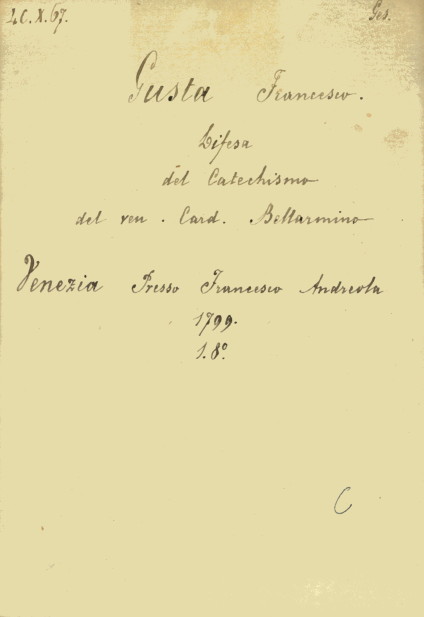 2C.X.67.
Ges.
Gusta Francesco.
Difesa
del Catechismo
del ven. Card. Bellarmino
Venezia Presso Francesco Andreola
1799.
1.8º
C